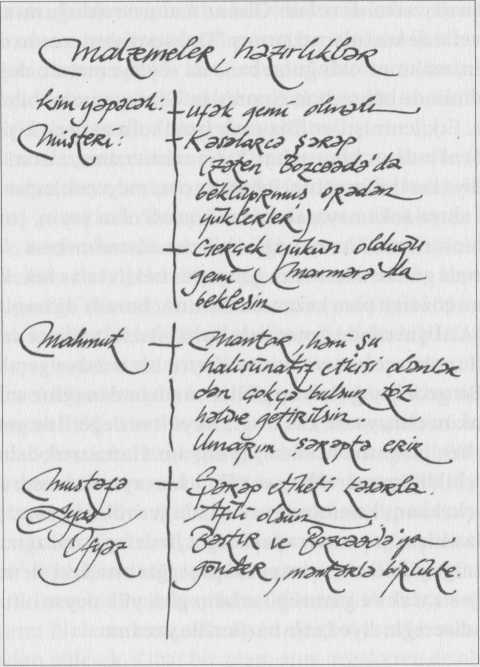 Malzemeler, hazırlıklar
kim yapacak: - uçak gemi olmalı
Müşteri: - Kasalarca şarap
(zaten Bozcaada'da
bekliyormuş oradan
yüklerler)
- Gerçek yükün olduğu
gemi Marmara'da
beklesin
Mahmut - mantar, hani şu
halisünatif etkisi olanlar
dan çokça bulsun toz
haline getirilsin
Umarım şarapta erir
Mustafa - Şarap etiketi tasarla.
Ayaz Afili olsun
Ayaz Bastır ve Bozcaada'ya
gönder, mantarla birlikte